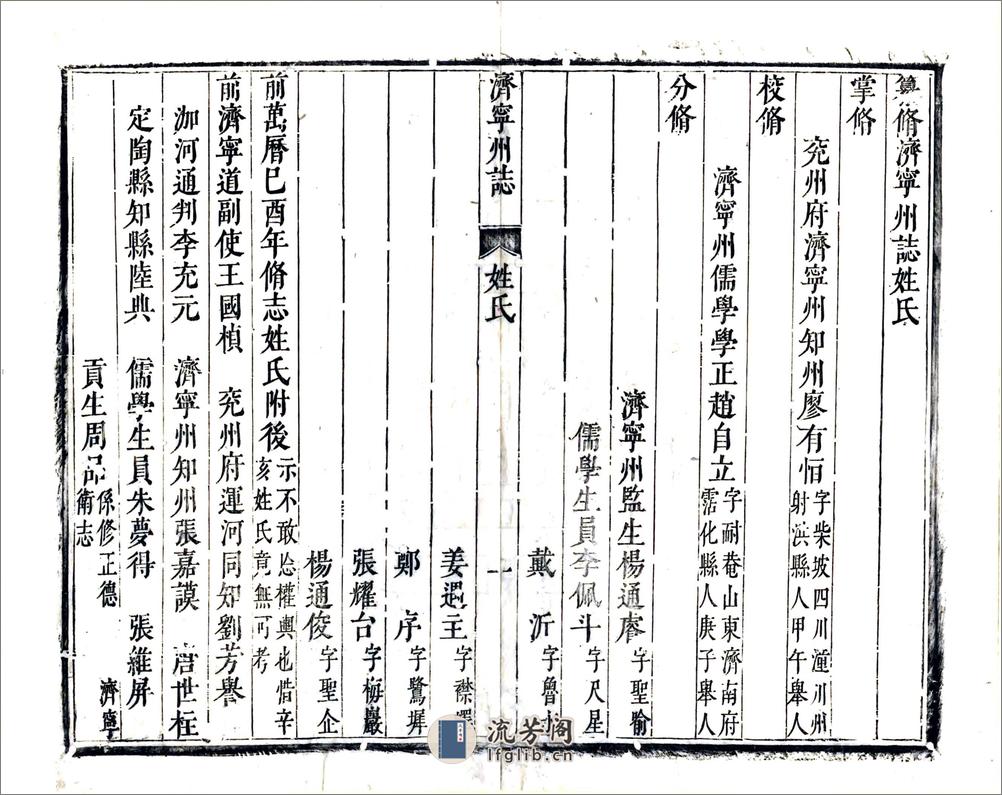 纂脩濟寧州誌姓氏
掌脩
兖州府濟寧州知州廖有恒 字柴坡四川潼川州射洪縣人甲午舉人
校脩
濟寧州儒學學正趙自立 字耐菴山東濟南府霑化縣人庚子舉人
分脩
濟寧州監生楊通睿 字聖喻
儒學生員李佩斗 字尺星
戴沂 字魯
濟寧州誌 姓氏 一
姜遇主 字襟
鄭序 字鷺墀
張耀台 字梅巖
楊通俊 字聖企
前萬曆己酉年脩志姓氏附後 示不敢忿權輿也惜辛亥姓氏竟無可考
前濟寧道副使王國楨 兖州府運河同知劉芳譽
泇河通判李充元 濟寧州知州張嘉謨 唐世柱
定陶縣知縣陸典 儒學生員朱夢得 張維屏
貢生周 係修正德濟寧衛志
流芳阁
lfglib.cn